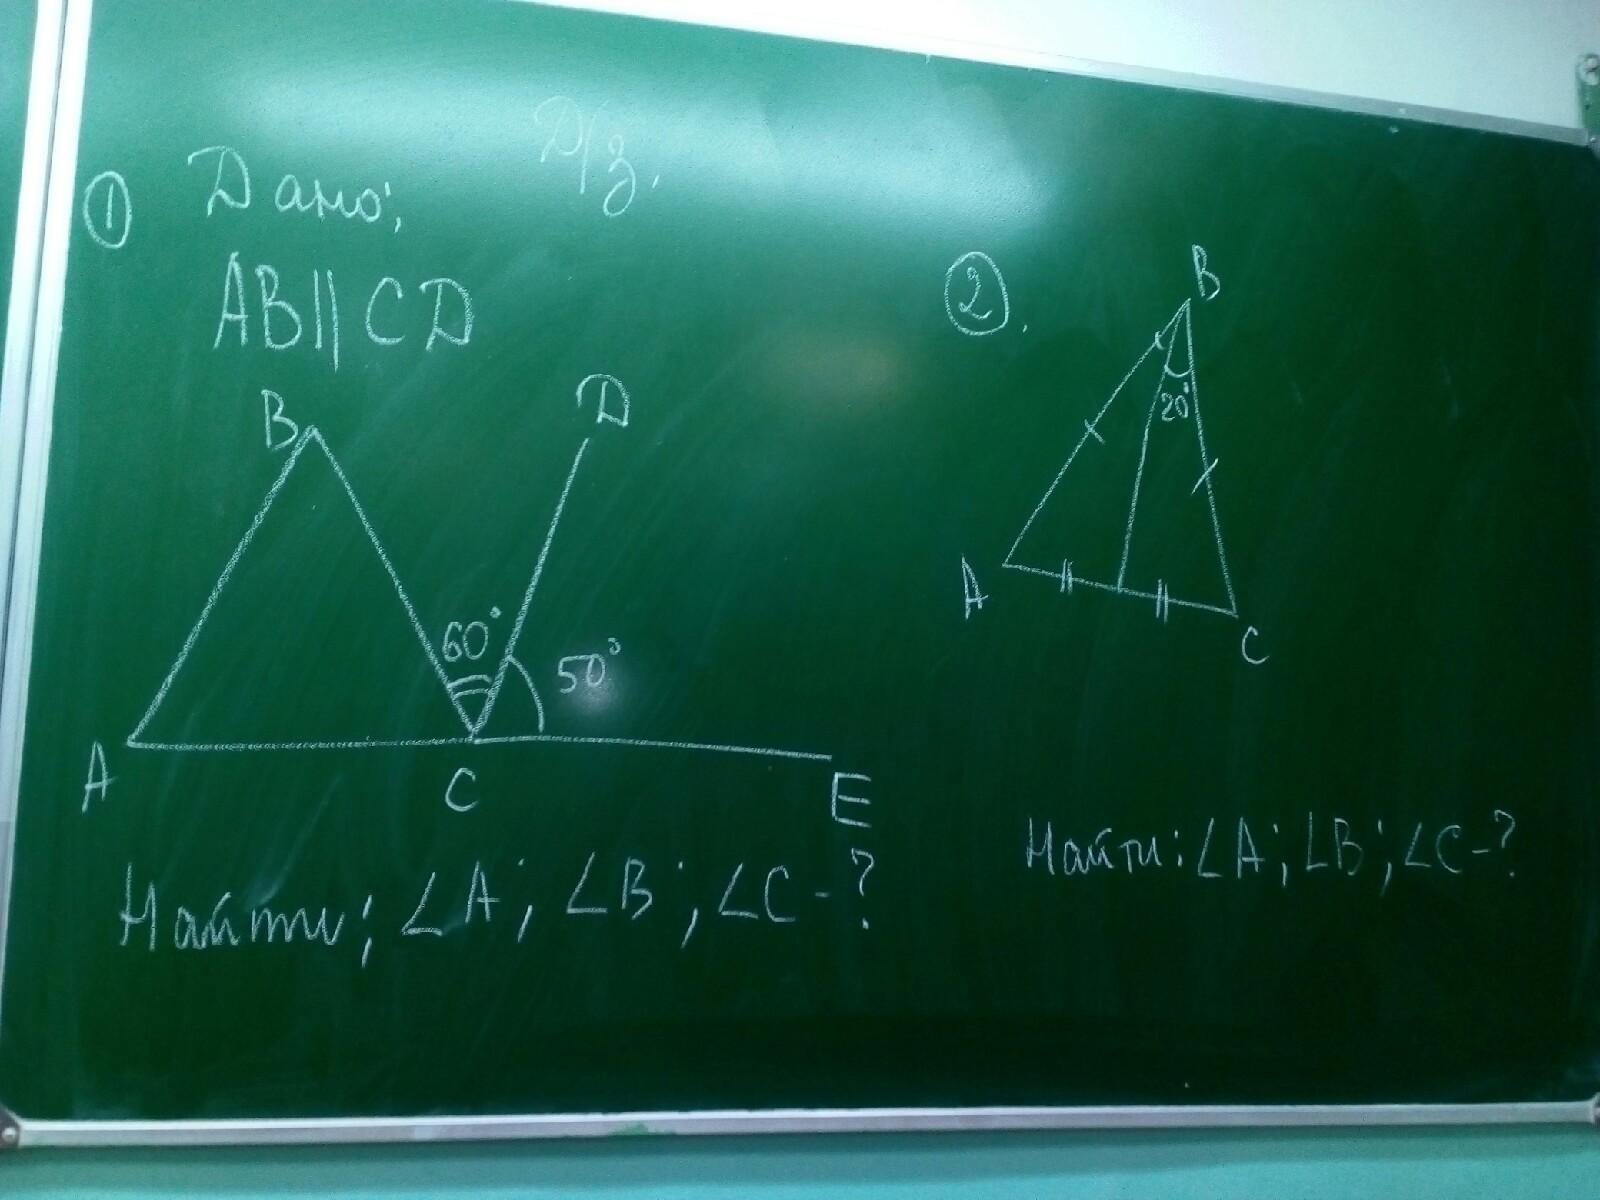 Д/з.
① Дано:
AB || CD
B
D
60°
50°
A
C
E
Найти: ∠A; ∠B; ∠C-?
②.
B
20°
A
C
Найти: ∠A; ∠B; ∠C-?